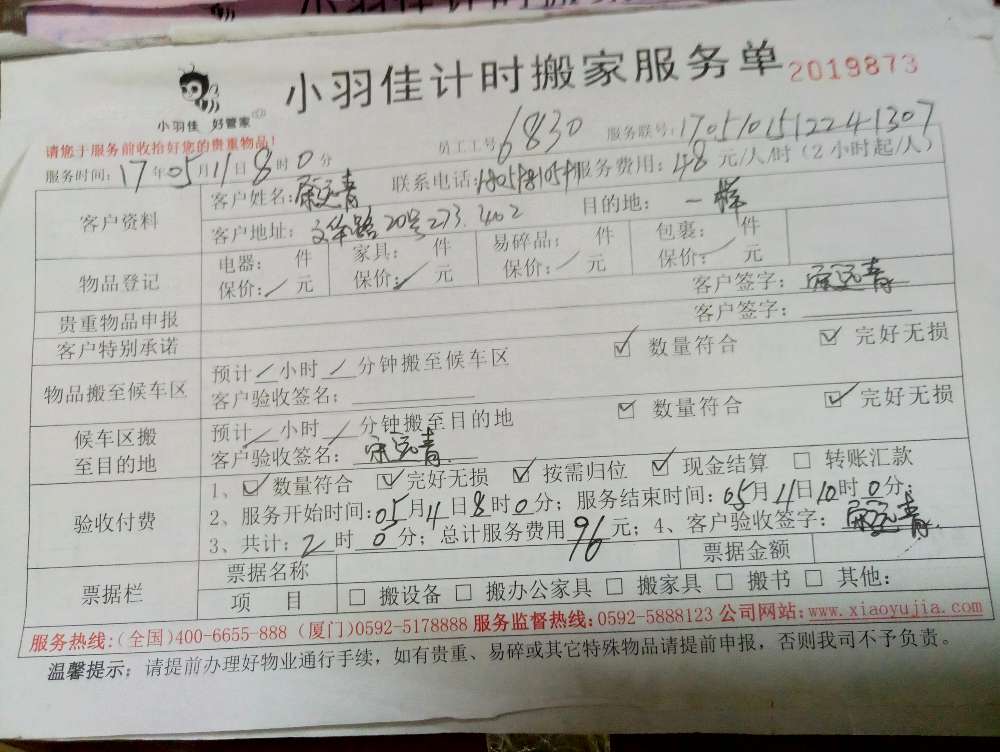 小羽佳 好管家
小羽佳计时搬家服务单 2019873
请您于服务前收拾好您的贵重物品!
员工工号 6830 服务联号:170510151224-1307
服务时间:17年05月11日8时0分
客户资料 客户姓名: 远青 联系电话: 服务费用:48元/人/时(2小时起/人)
客户地址:文华路20号273.402 目的地:一样
物品登记 电器: 件 家具: 件 易碎品: 件 包裹: 件
保价:/元 保价:/元 保价:/元 保价:/元
贵重物品申报 客户签字: 远青
客户特别承诺 客户签字:
物品搬至候车区 预计/小时/分钟搬至候车区 ☑ 数量符合 ☑ 完好无损
客户验收签名:
候车区搬至目的地 预计/小时/分钟搬至目的地 ☑ 数量符合 ☑ 完好无损
客户验收签名: 远青
验收付费 1、☑ 数量符合 ☑ 完好无损 ☑ 按需归位 ☑ 现金结算 □ 转账汇款
2、服务开始时间:05月11日8时0分;服务结束时间:05月11日10时0分;
3、共计:2时0分;总计服务费用96元;4、客户验收签字: 远青
票据栏 票据名称 票据金额
项 目 □ 搬设备 □ 搬办公家具 □ 搬家具 □ 搬书 □ 其他:
服务热线:(全国)400-6655-888 (厦门)0592-5178888 服务监督热线:0592-5888123 公司网站:www.xiaoyujia.com
温馨提示:请提前办理好物业通行手续,如有贵重、易碎或其它特殊物品请提前申报,否则我司不予负责。